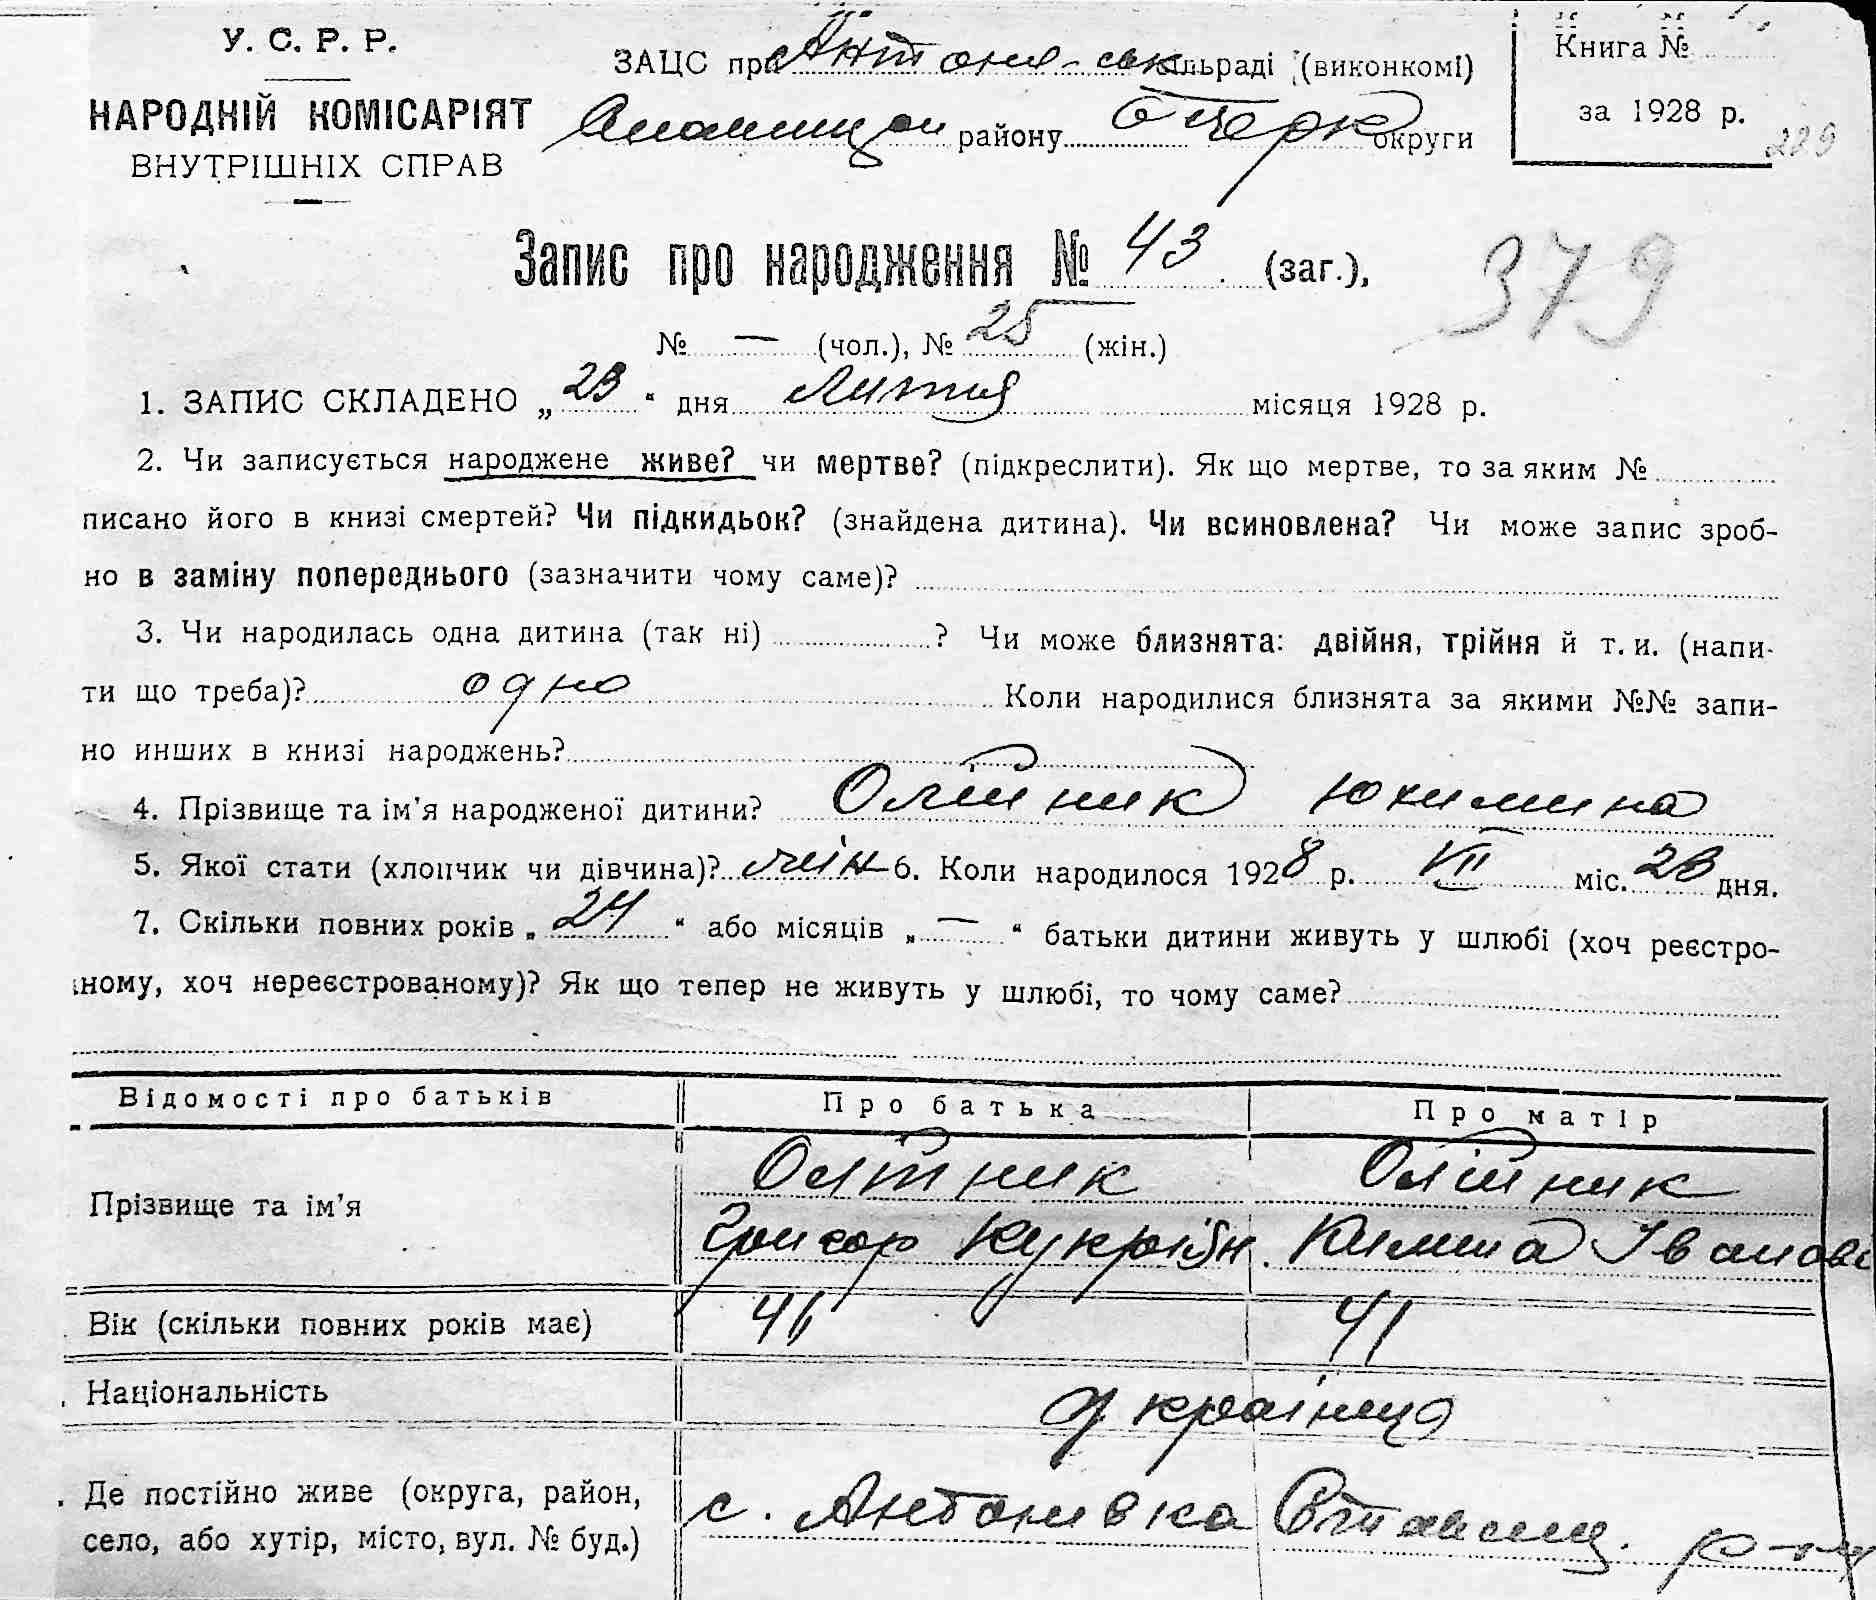 У. С. Р. Р.
НАРОДНІЙ КОМІСАРІЯТ
ВНУТРІШНІХ СПРАВ
ЗАЦС при сільраді (виконкомі)
району округи
Книга №
за 1928 р.
289
Запис про народження № 43 (заг.),
379
№ — (чол.), № 25 (жін.)
1. ЗАПИС СКЛАДЕНО „ 23 “ дня Липня місяця 1928 р.
2. Чи записується народжене живе? чи мертве? (підкреслити). Як що мертве, то за яким №
писано його в книзі смертей? Чи підкидьок? (знайдена дитина). Чи всиновлена? Чи може запис зроб-
но в заміну попереднього (зазначити чому саме)?
3. Чи народилась одна дитина (так ні) ? Чи може близнята: двійня, трійня й т. и. (напи-
ти що треба)? одно Коли народилися близнята за якими №№ запи-
но инших в книзі народжень?
4. Прізвище та ім'я народженої дитини? Олійник Юхимина
5. Якої стати (хлопчик чи дівчина)? жін 6. Коли народилося 1928 р. VII міс. 23 дня.
7. Скільки повних років „ 24 “ або місяців „ — “ батьки дитини живуть у шлюбі (хоч реєстро-
ному, хоч нереєстрованому)? Як що тепер не живуть у шлюбі, то чому саме?
Відомості про батьків Про батька Про матір
Прізвище та ім'я Олійник Олійник
Григор Килина Іванов
Вік (скільки повних років має) 41
Національність українці
Де постійно живе (округа, район,
село, або хутір, місто, вул. № буд.) с. Антонівка